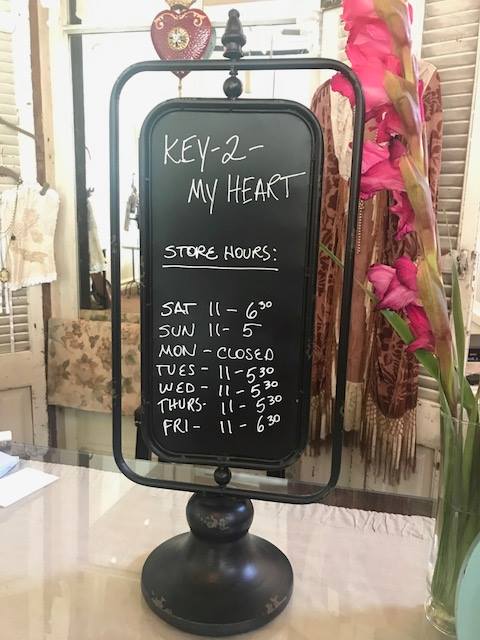 KEY-2-
MY HEART
STORE HOURS:
SAT 11 - 6³⁰
SUN 11 - 5
MON - CLOSED
TUES - 11 - 5³⁰
WED - 11 - 5³⁰
THURS - 11 - 5³⁰
FRI - 11 - 6³⁰